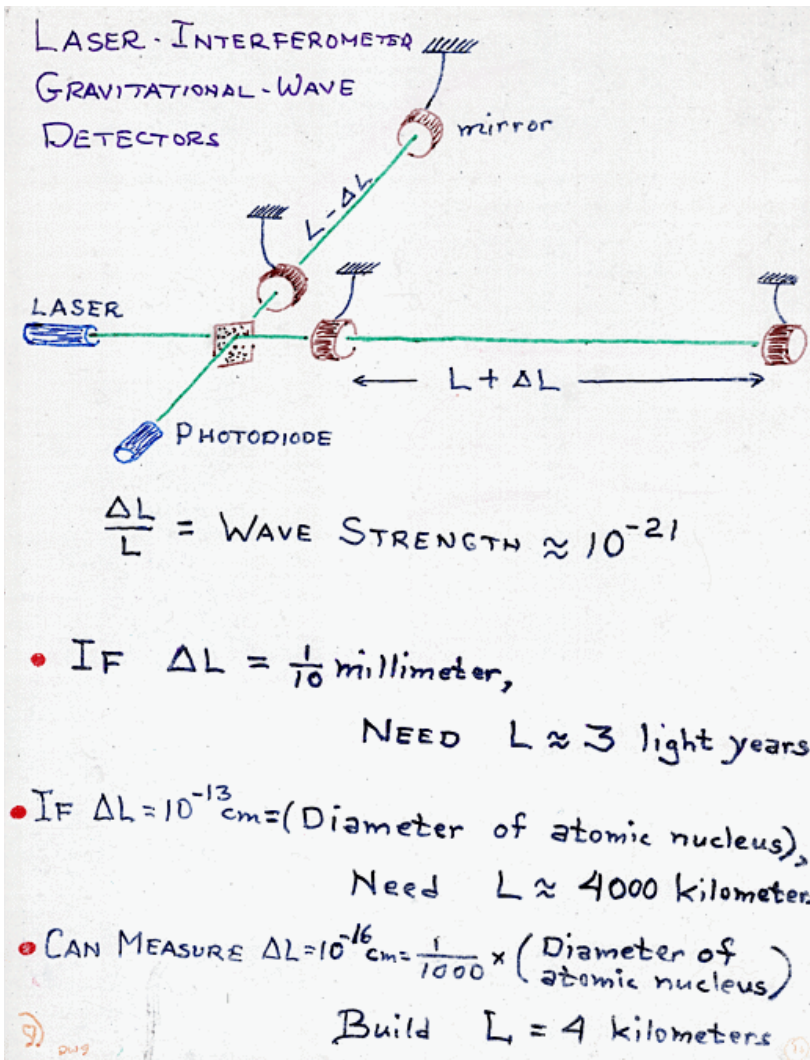 LASER-INTERFEROMETER
GRAVITATIONAL-WAVE
DETECTORS
mirror
L-ΔL
LASER
L + ΔL
PHOTODIODE
ΔL/L = WAVE STRENGTH ≈ 10^-21
• IF ΔL = 1/10 millimeter,
NEED L ≈ 3 light years
• IF ΔL = 10^-13 cm = (Diameter of atomic nucleus),
Need L ≈ 4000 kilometer
• CAN MEASURE ΔL = 10^-16 cm = 1/1000 × (Diameter of
atomic nucleus)
Build L = 4 kilometers